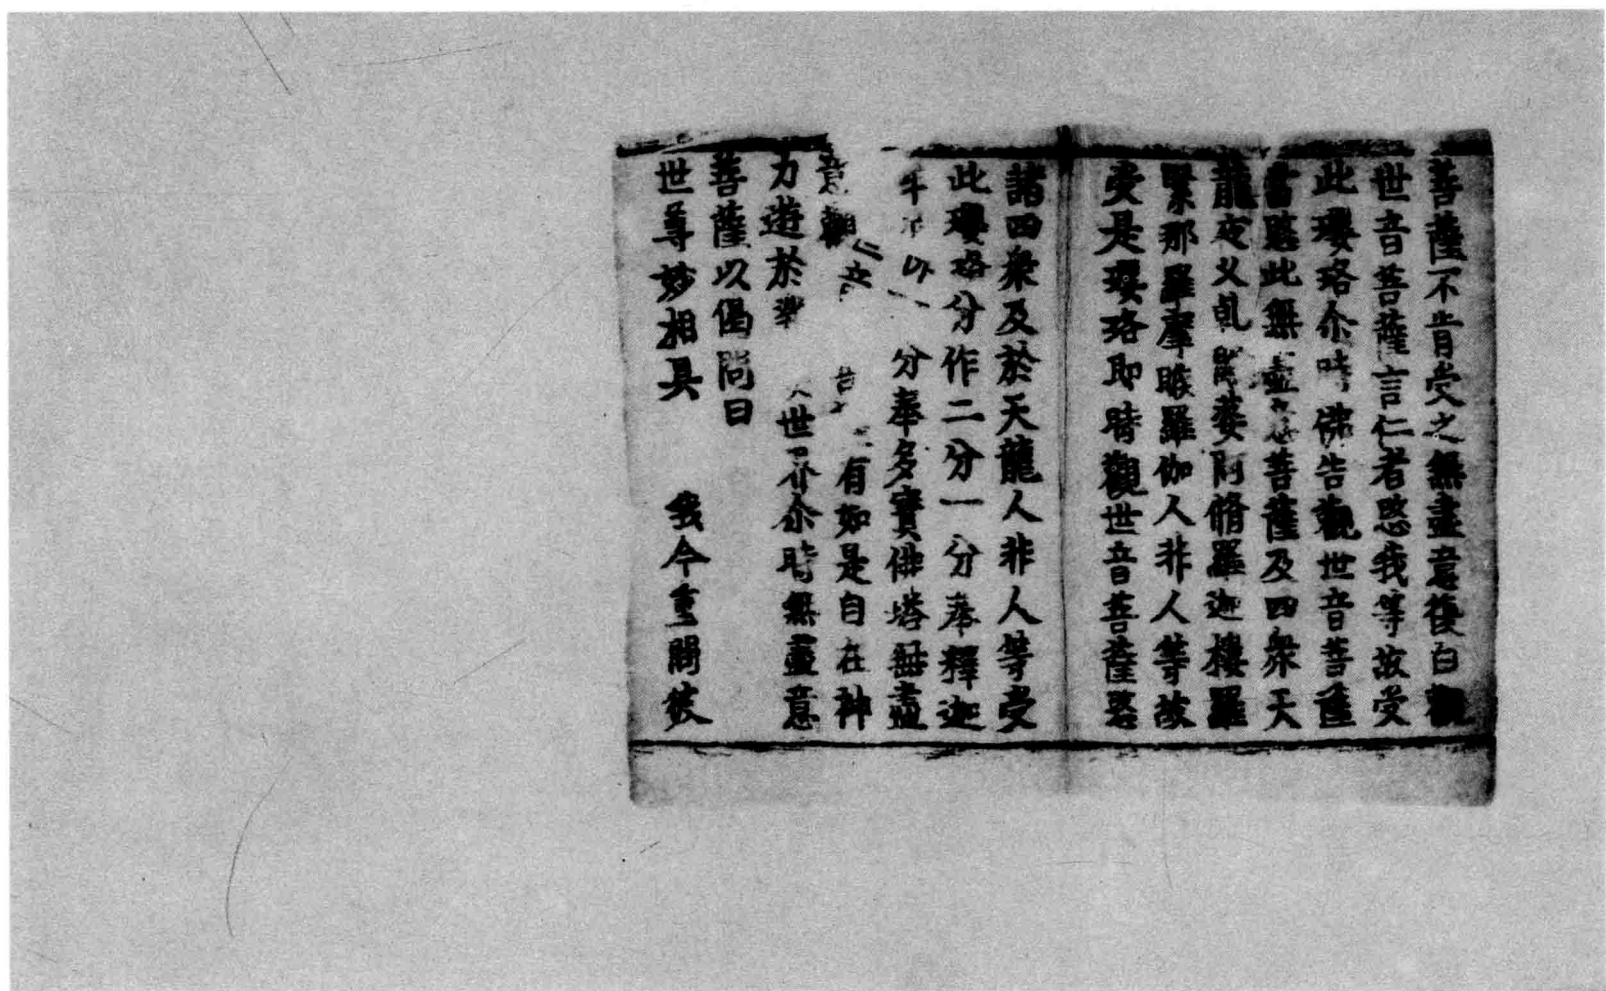 菩薩不肯受之無盡意復白觀
世音菩薩言仁者愍我等故受
此瓔珞尒時佛告觀世音菩薩
當愍此無盡意菩薩及四衆天
龍夜叉乹闥婆阿脩羅迦樓羅
緊那羅摩睺羅伽人非人等故
受是瓔珞即時觀世音菩薩愍
諸四衆及於天龍人非人等受
此瓔珞分作二分一分奉釋迦
牟 分奉多寳佛塔無盡
意觀 音 有如是自在神
力遊於 世界尒時無盡意
菩薩以偈問曰
世尊妙相具 我今重問彼